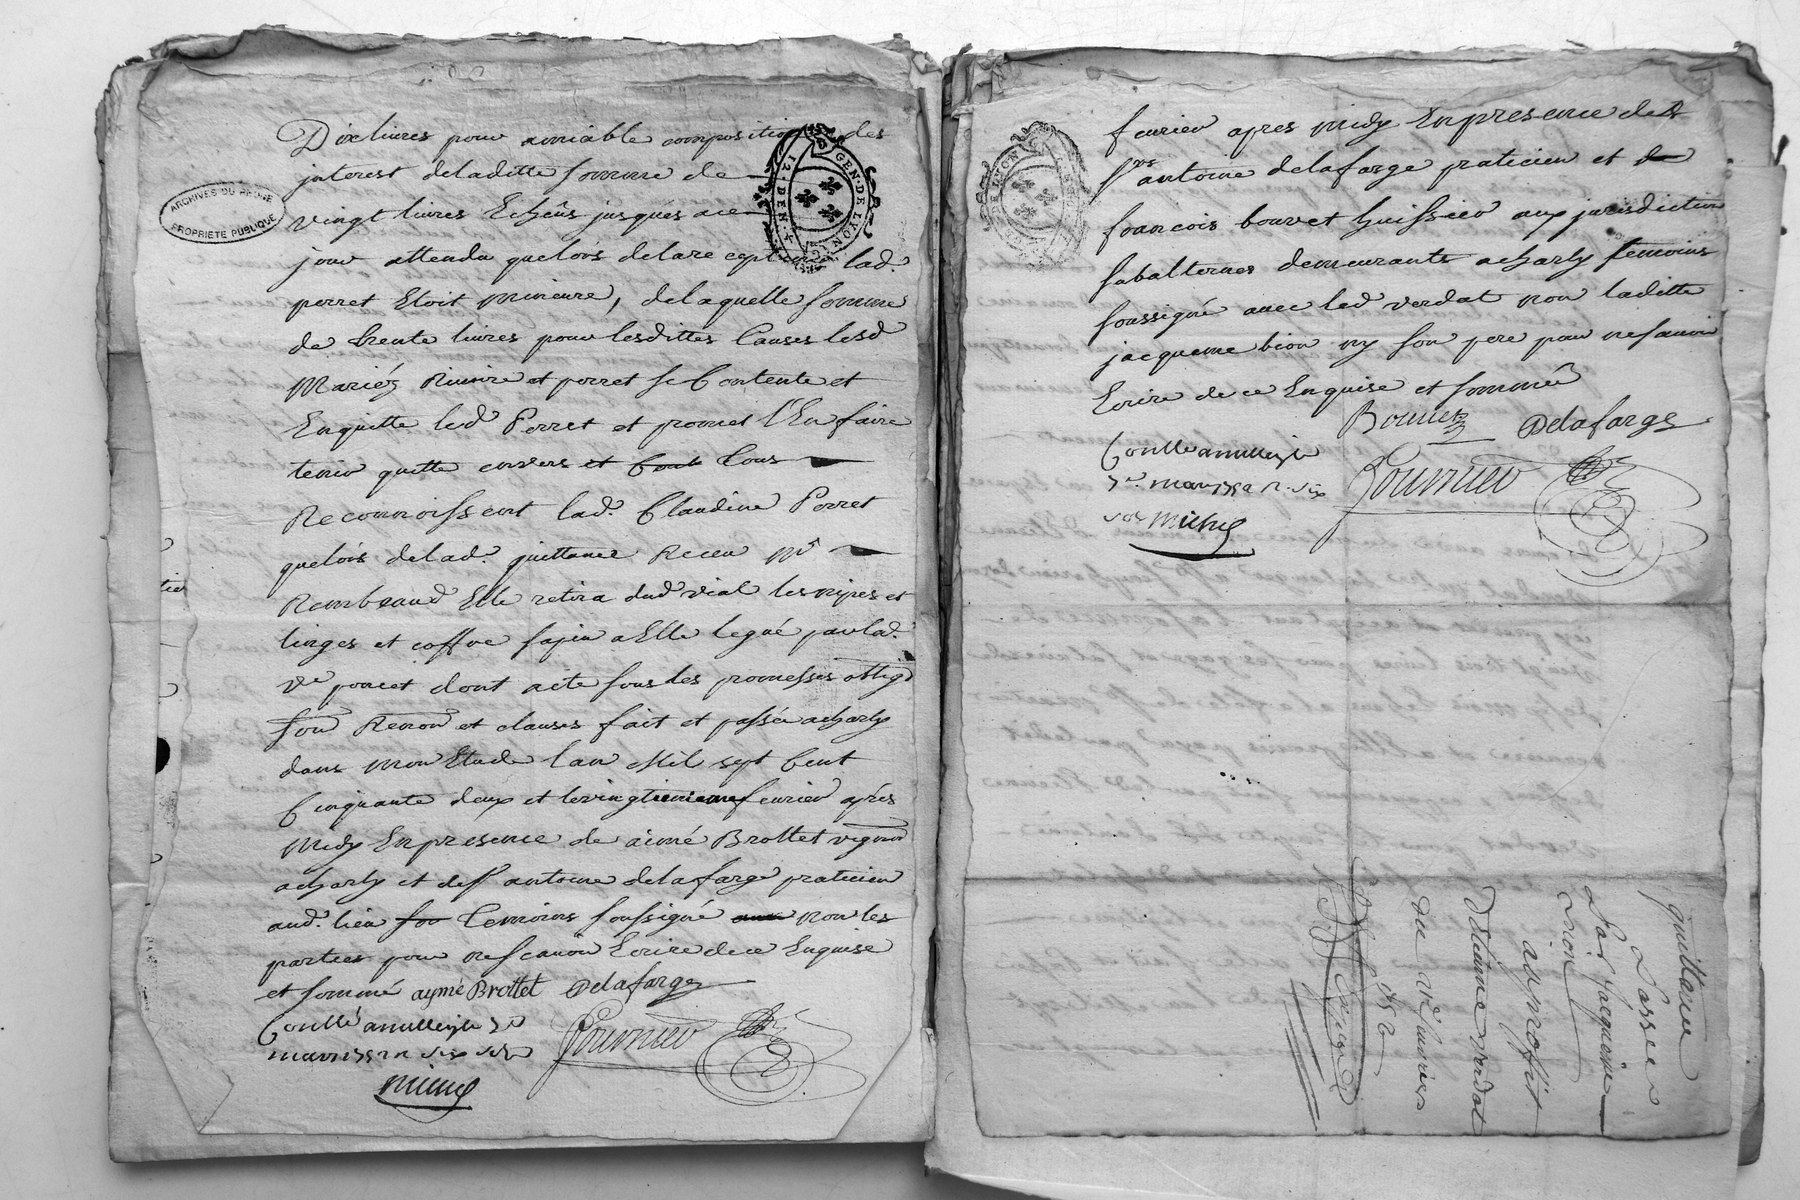 Dix livres pour amiable composition des
interest deladitte somme de
vingt livres Echeûs jusqués a ce
jour attendu quelors delareception lad.
perret Etoit mineure, delaquelle somme
de trente livres pour lesdittes Causes lesd
Mariéz Riviere et perret se Contente et
Enquitte led Perret et promet l'En faire
tenir quitte envers et Contre tous
Reconnoissent lad. Claudine Perret
quelors delad. quittance Receu Mr
Rembeaud Elle retira dud vial les nipes et
linges et coffre sapin a Elle legué par lad.
ve poncet dont acte sous les promesses oblig
soûm Renon et clauses fait et passé a charly
dans mon Etude l'an Mil sept Cent
Cinquante deux et le vingtieme fevrier aprés
Midy En presence de aimé Brottet vigneron
a charly et de sr antoine delafarge praticien
aud. lieu temoins soussigné non les
parties pour ne scavoir Ecrire de ce Enquise
et sommé aymé Brottet Delafarge
Conllé a millery le 3e
mars 1752 R six sols
Fournier
ARCHIVES DU RHONE
PROPRIETE PUBLIQUE
GEN. DE LYON
12. DEN.
fevrier apres midy En presence de
srs antoine delafarge praticien et
francois bouvet huissier aux jurisdictions
subalternes demeurants a charly temoins
soussigné avec led verdat non laditte
jacqueme bion ny son pere pour ne scavoir
Ecrire de ce Enquise et sommé
Bouvet Delafarge
Conllé a millery le
3e. mars 1752 R. six
sols
Fournier
quittance
Passée
Par Jacqueme
Bion
au proffit
d'Etienne verdat
du 20e fevrier
1752